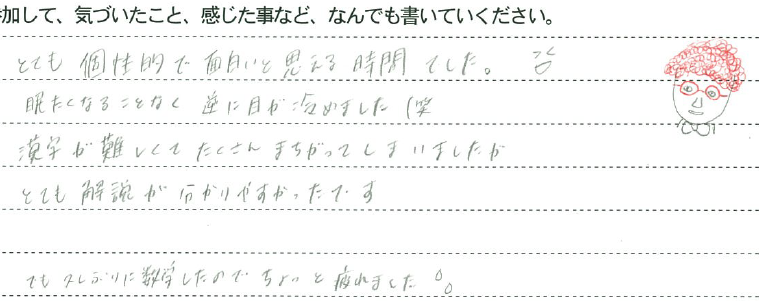 加して、気づいたこと、感じた事など、なんでも書いていください。
とても 個性的で 面白いと思える 時間 でした。
眠たくなることなく 逆に目が冷めました (笑
漢字が難しくて たくさん まちがってしまいましたが
とても 解説が 分かりやすかったです
でも久しぶりに数学したので ちょっと 疲れました